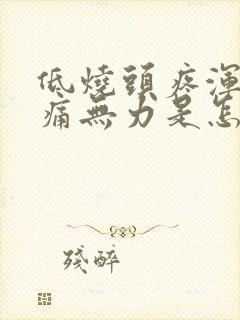 低燒頭疼渾
痛無力是怎
殘醉